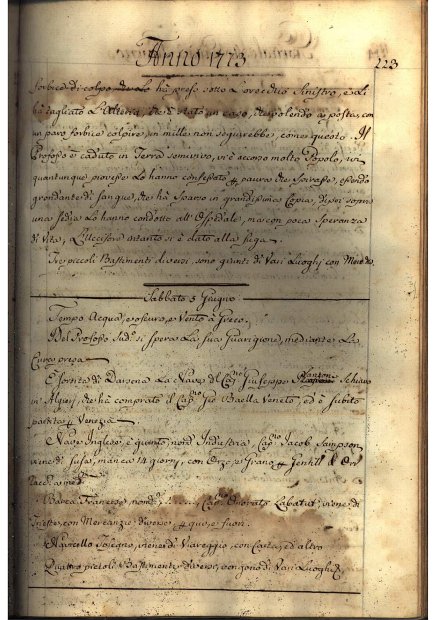 Anno 1773
223
forbice di colpo lo ha preso sotto l'orecchio Sinistro, e li
hà tagliato l'Arteria, che è stato un caso, che volendo à posta con
un paro forbice colpire, in mille non seguirebbe, come questo. Il
Profoso è caduto in Terra semivivo, vi è accorso molto Popolo, ivi
quantunque piovesse Lo hanno confessato paura che Spirasse, essendo
grondante di Sangue, che hà Sparso in grandissima Copia, di poi sopra
una Sedia Lo hanno condotto all' Ospidale, mà con poca Speranza
di Vita, L'Uccisore intanto si è dato alla fuga.
Tre piccoli Bastimenti diversi, sono giunti di Varj Luoghi con
Sabbato 5 Giugno
Tempo Acqua, e oscuro, e Vento à Greco.
Del Profoso Sud. si Spera La Sua Guarigione, mediante La
Cura presa
È sortita di Darsena La Nave del Cap. Giuseppe Schiavo
in Algieri, che hà comprato il Cap. Gio Baella Veneto, ed è Subito
partita Venezia
Nave Inglese, è giunta, nom. Industria, Cap. Jacob Sampson
viene di Susa, manca 14 giorni, con Orzo, e Grano Gentill
Barca Francese, nom. Cap. Onorato Labatut, viene di
Trieste, con Mercanzie diverse, qui, e fuori.
Navicello Toscano, viene di Viareggio, con Carta, ed altro
Quattro piccoli Bastimenti diversi, vengono di Varj Luoghi